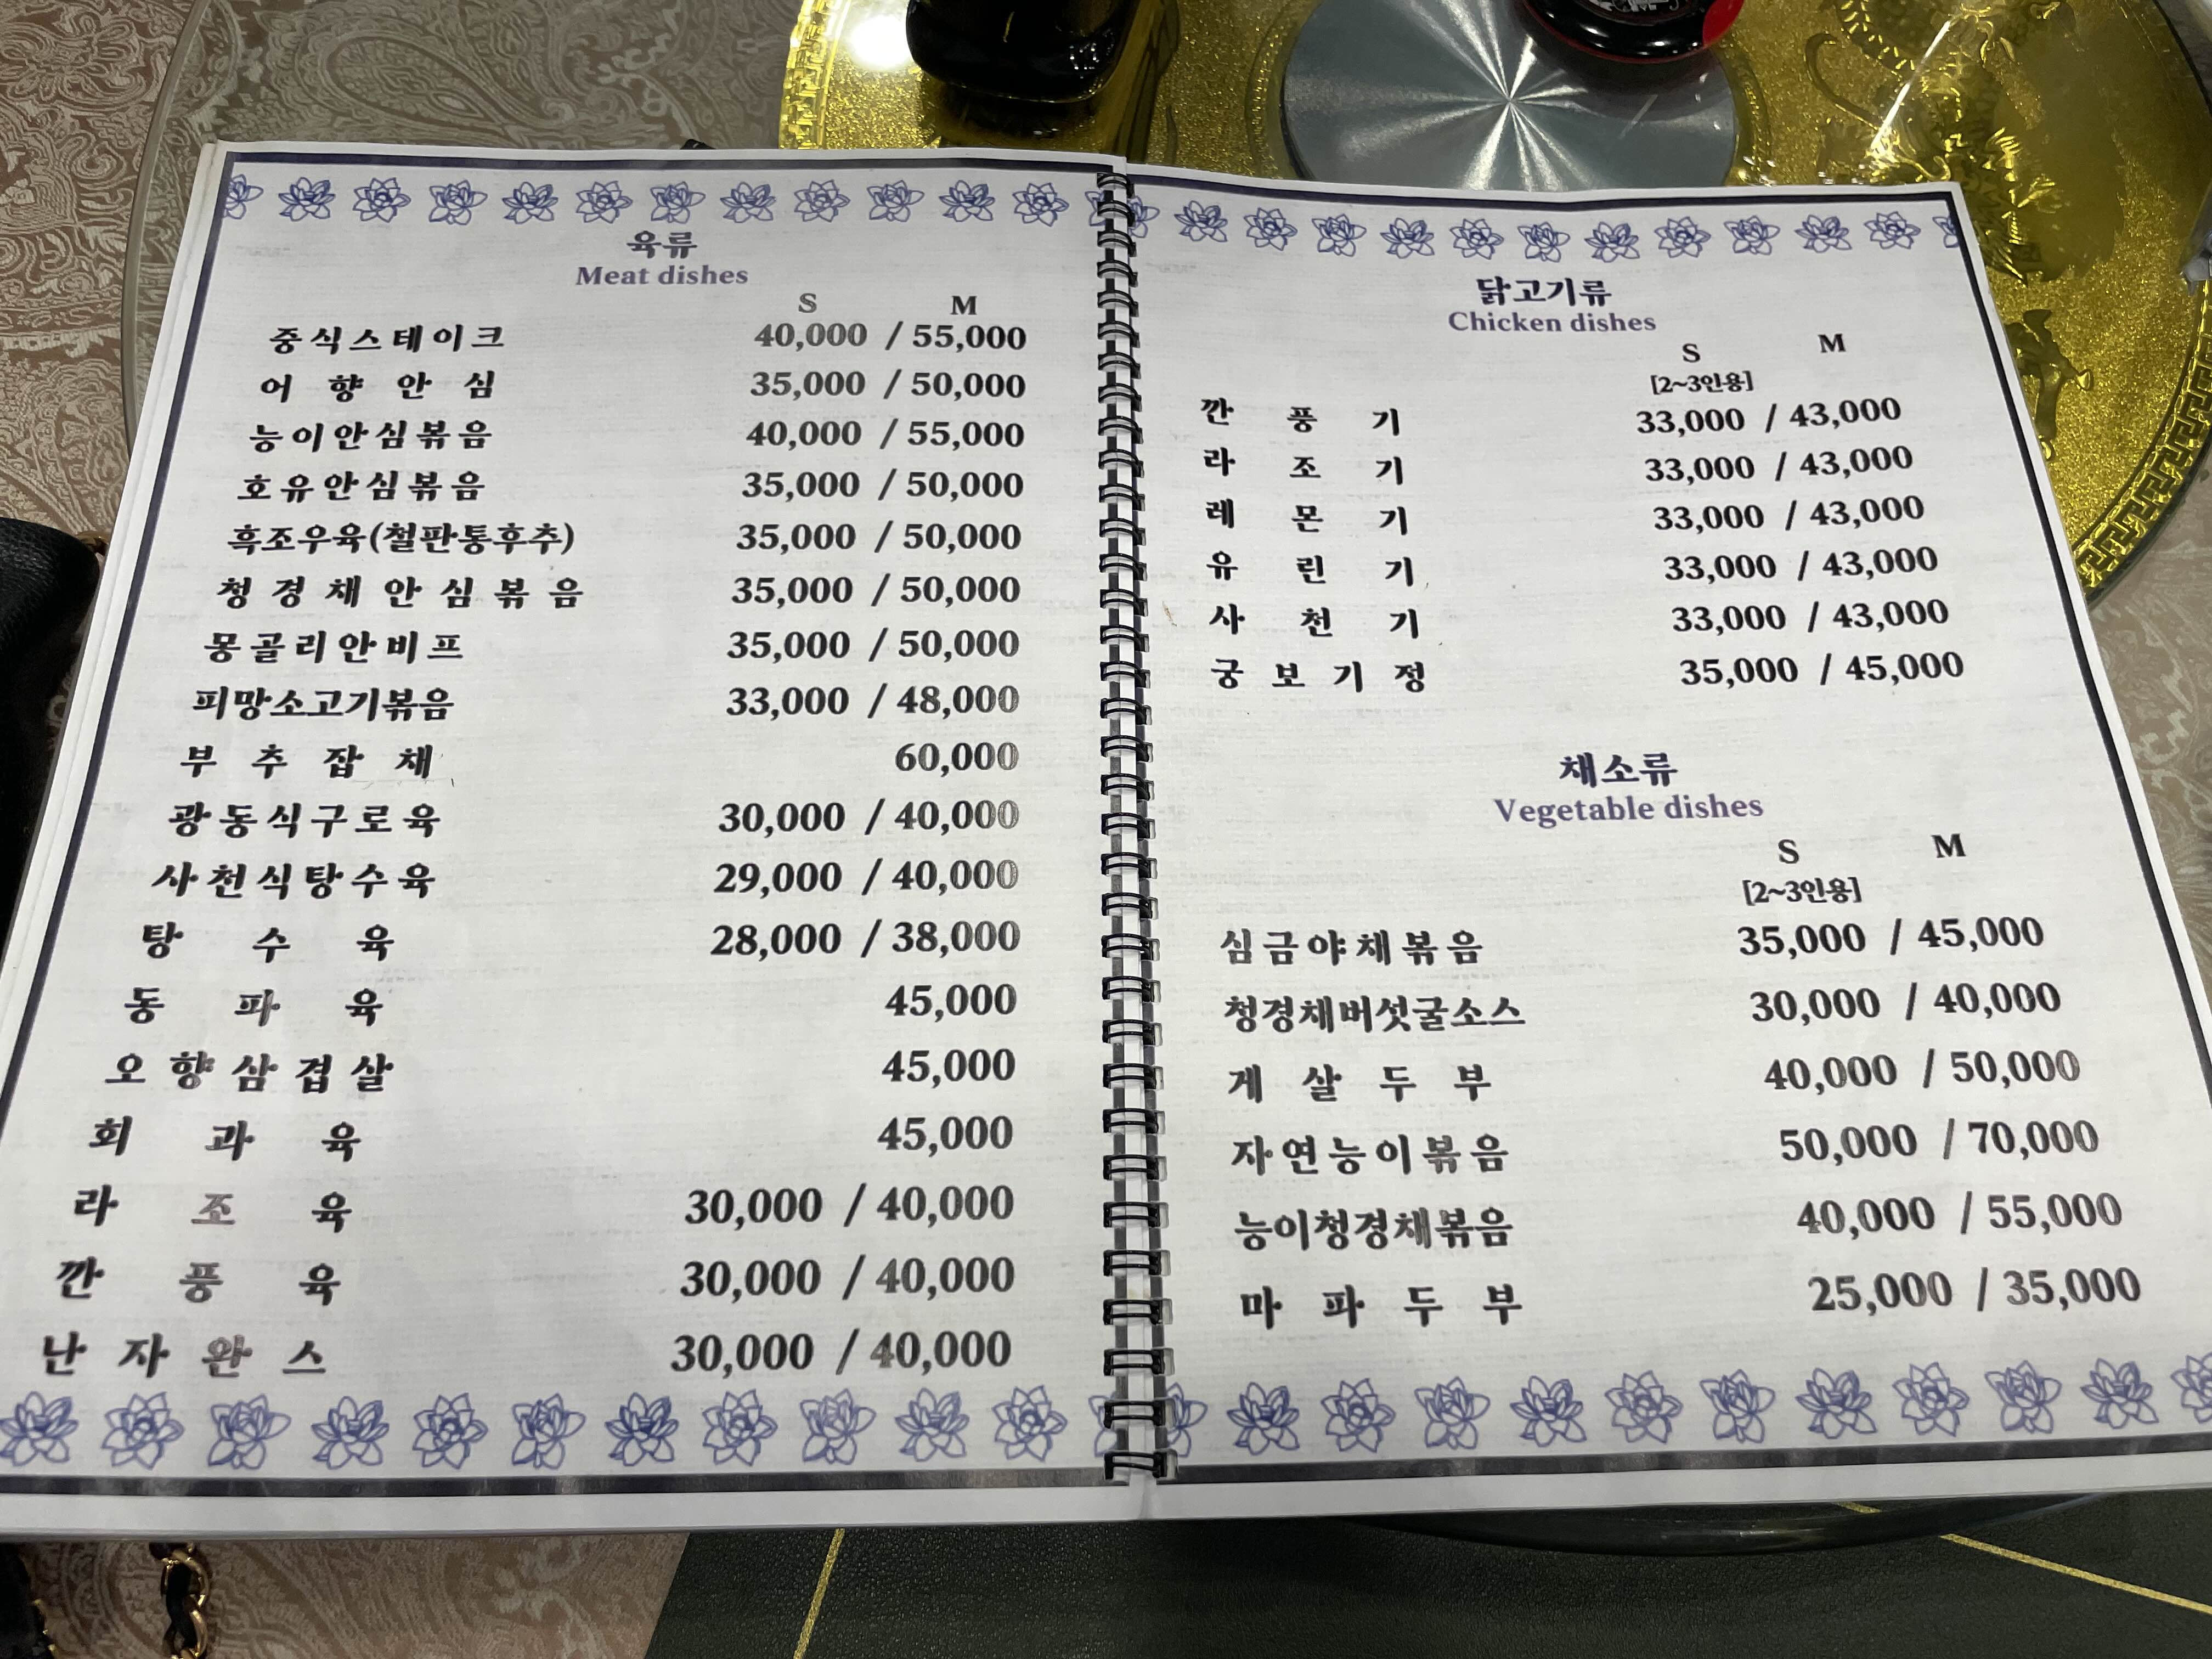 육류
Meat dishes
S M
중식스테이크 40,000 / 55,000
어향안심 35,000 / 50,000
능이안심볶음 40,000 / 55,000
호유안심볶음 35,000 / 50,000
흑조우육(철판통후추) 35,000 / 50,000
청경채안심볶음 35,000 / 50,000
몽골리안비프 35,000 / 50,000
피망소고기볶음 33,000 / 48,000
부추잡채 60,000
광동식구로육 30,000 / 40,000
사천식탕수육 29,000 / 40,000
탕수육 28,000 / 38,000
동파육 45,000
오향삼겹살 45,000
회과육 45,000
라조육 30,000 / 40,000
깐풍육 30,000 / 40,000
난자완스 30,000 / 40,000
닭고기류
Chicken dishes
S M
[2~3인용]
깐풍기 33,000 / 43,000
라조기 33,000 / 43,000
레몬기 33,000 / 43,000
유린기 33,000 / 43,000
사천기 33,000 / 43,000
궁보기정 35,000 / 45,000
채소류
Vegetable dishes
S M
[2~3인용]
심금야채볶음 35,000 / 45,000
청경채버섯굴소스 30,000 / 40,000
게살두부 40,000 / 50,000
자연능이볶음 50,000 / 70,000
능이청경채볶음 40,000 / 55,000
마파두부 25,000 / 35,000